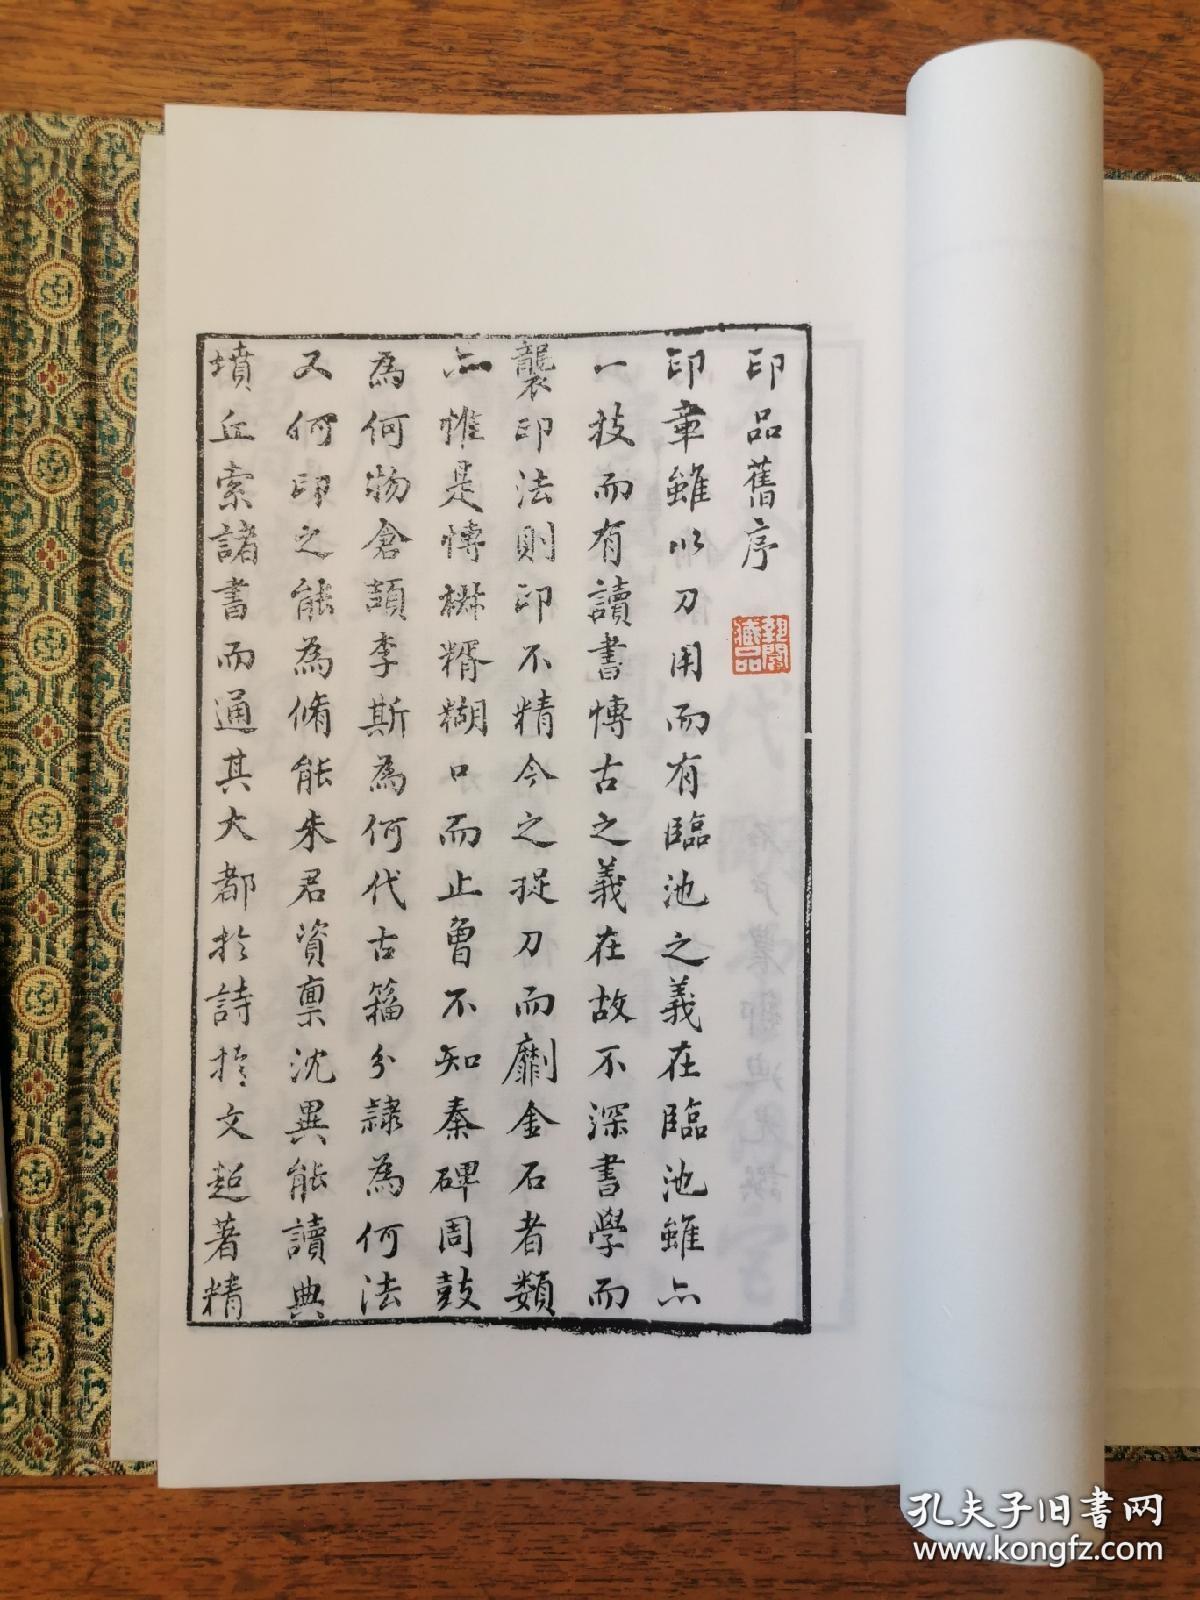 印品舊序
印章雖以刀用而有臨池之義在臨池雖亦
一技而有讀書博古之義在故不深書學而
襲印法則印不精今之捉刀而劘金石者類
亦惟是慱搠糈糊口而止曾不知秦碑周鼓
為何物倉頡李斯為何代古籀分隸為何法
又何印之能為脩能朱君資禀沈異能讀典
墳丘索諸書而通其大都扵詩扵文起著精
孔夫子旧书网
www.kongfz.com